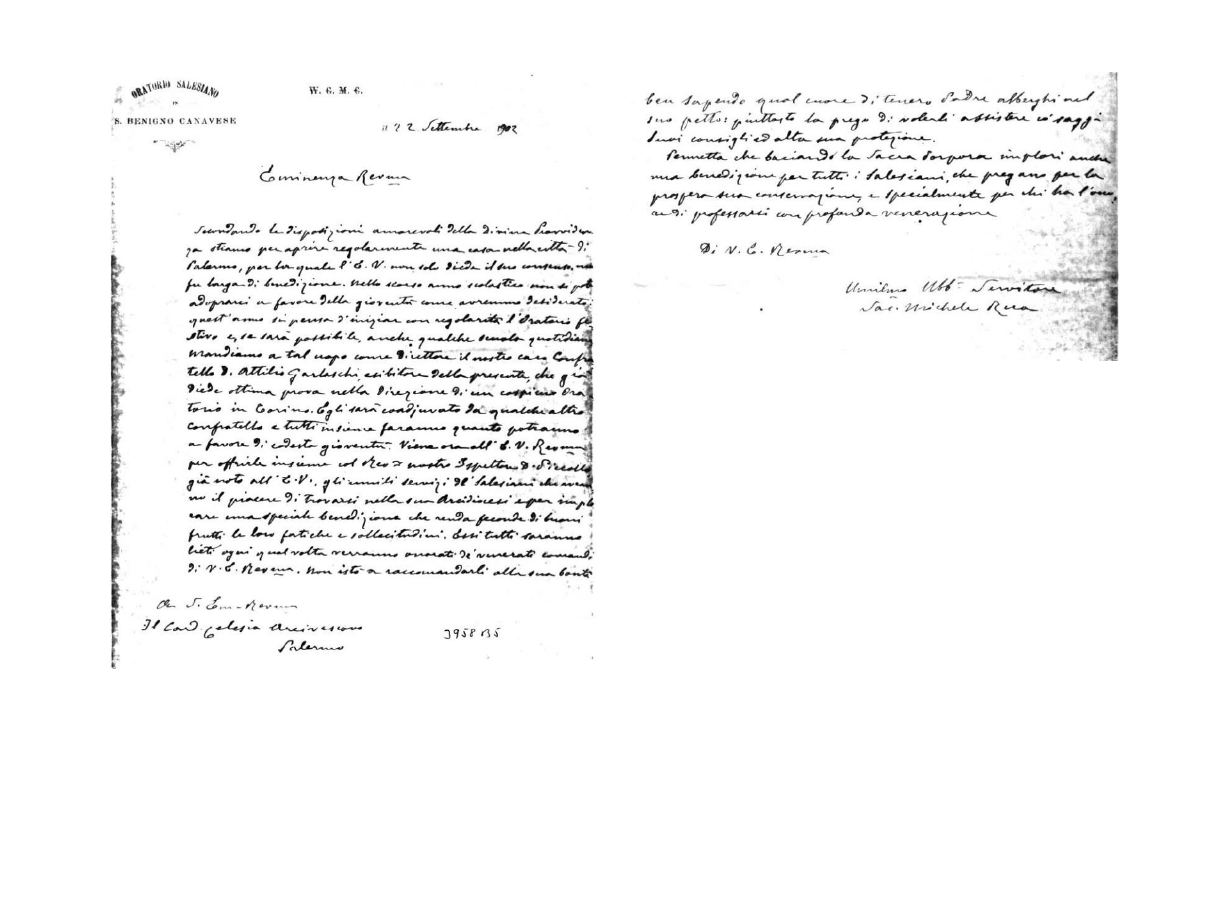 ORATORIO SALESIANO
IN
S. BENIGNO CANAVESE
W. G. M. G.
22 Settembre 1902
Eminenza Revma
Secondando le disposizioni amorevoli della divina Provviden
za stiamo per aprire regolarmente una casa nella città di
Palermo, per la quale l'E. V. non solo diede il suo consenso, ma
fu larga di benedizione. Nello scorso anno scolastico non si potè
adoprarci a favore della gioventù come avremmo desiderato;
quest'anno si pensa d'iniziar con regolarità l'Oratorio fe
stivo e, se sarà possibile, anche qualche scuola quotidiana
Mandiamo a tal uopo come Direttore il nostro caro Confra
tello D. Attilio Garlaschi, esibitore della presente, che già
diede ottima prova nella direzione di un cospicuo Ora
torio in Torino. Egli sarà coadjuvato da qualche altro
Confratello e tutti insieme faranno quanto potranno
a favore di codesta gioventù. Viene ora all'E. V. Revma
per offrirle insieme col nostro Ispettore D. Piccollo
già noto all'E. V., gli umili servizi de' Salesiani che avran
no il piacere di trovarsi nella sua Arcidiocesi e per implo
rare una speciale benedizione che renda feconde di buoni
frutti le loro fatiche e sollecitudini. Essi tutti saranno
lieti ogni qual volta verranno onorati de' venerati comandi
di V. E. Revma. Non istò a raccomandarli alla sua bontà
A S. Em. Revma
Il Card Celesia Arcivescovo
Palermo
3958 B5
ben sapendo qual cuore di tenero Padre alberghi nel
suo petto: piuttosto la prego di volerli assistere co' saggi
suoi consigli ed alta sua protezione.
Permetta che baciando la Sacra Porpora implori anche
una benedizione per tutti i Salesiani, che pregano per la
prospera sua conservazione, e specialmente per chi ha l'ono
re di professarsi con profonda venerazione
Di V. E. Revma
Umilmo Obb. Servitore
Sac. Michele Rua